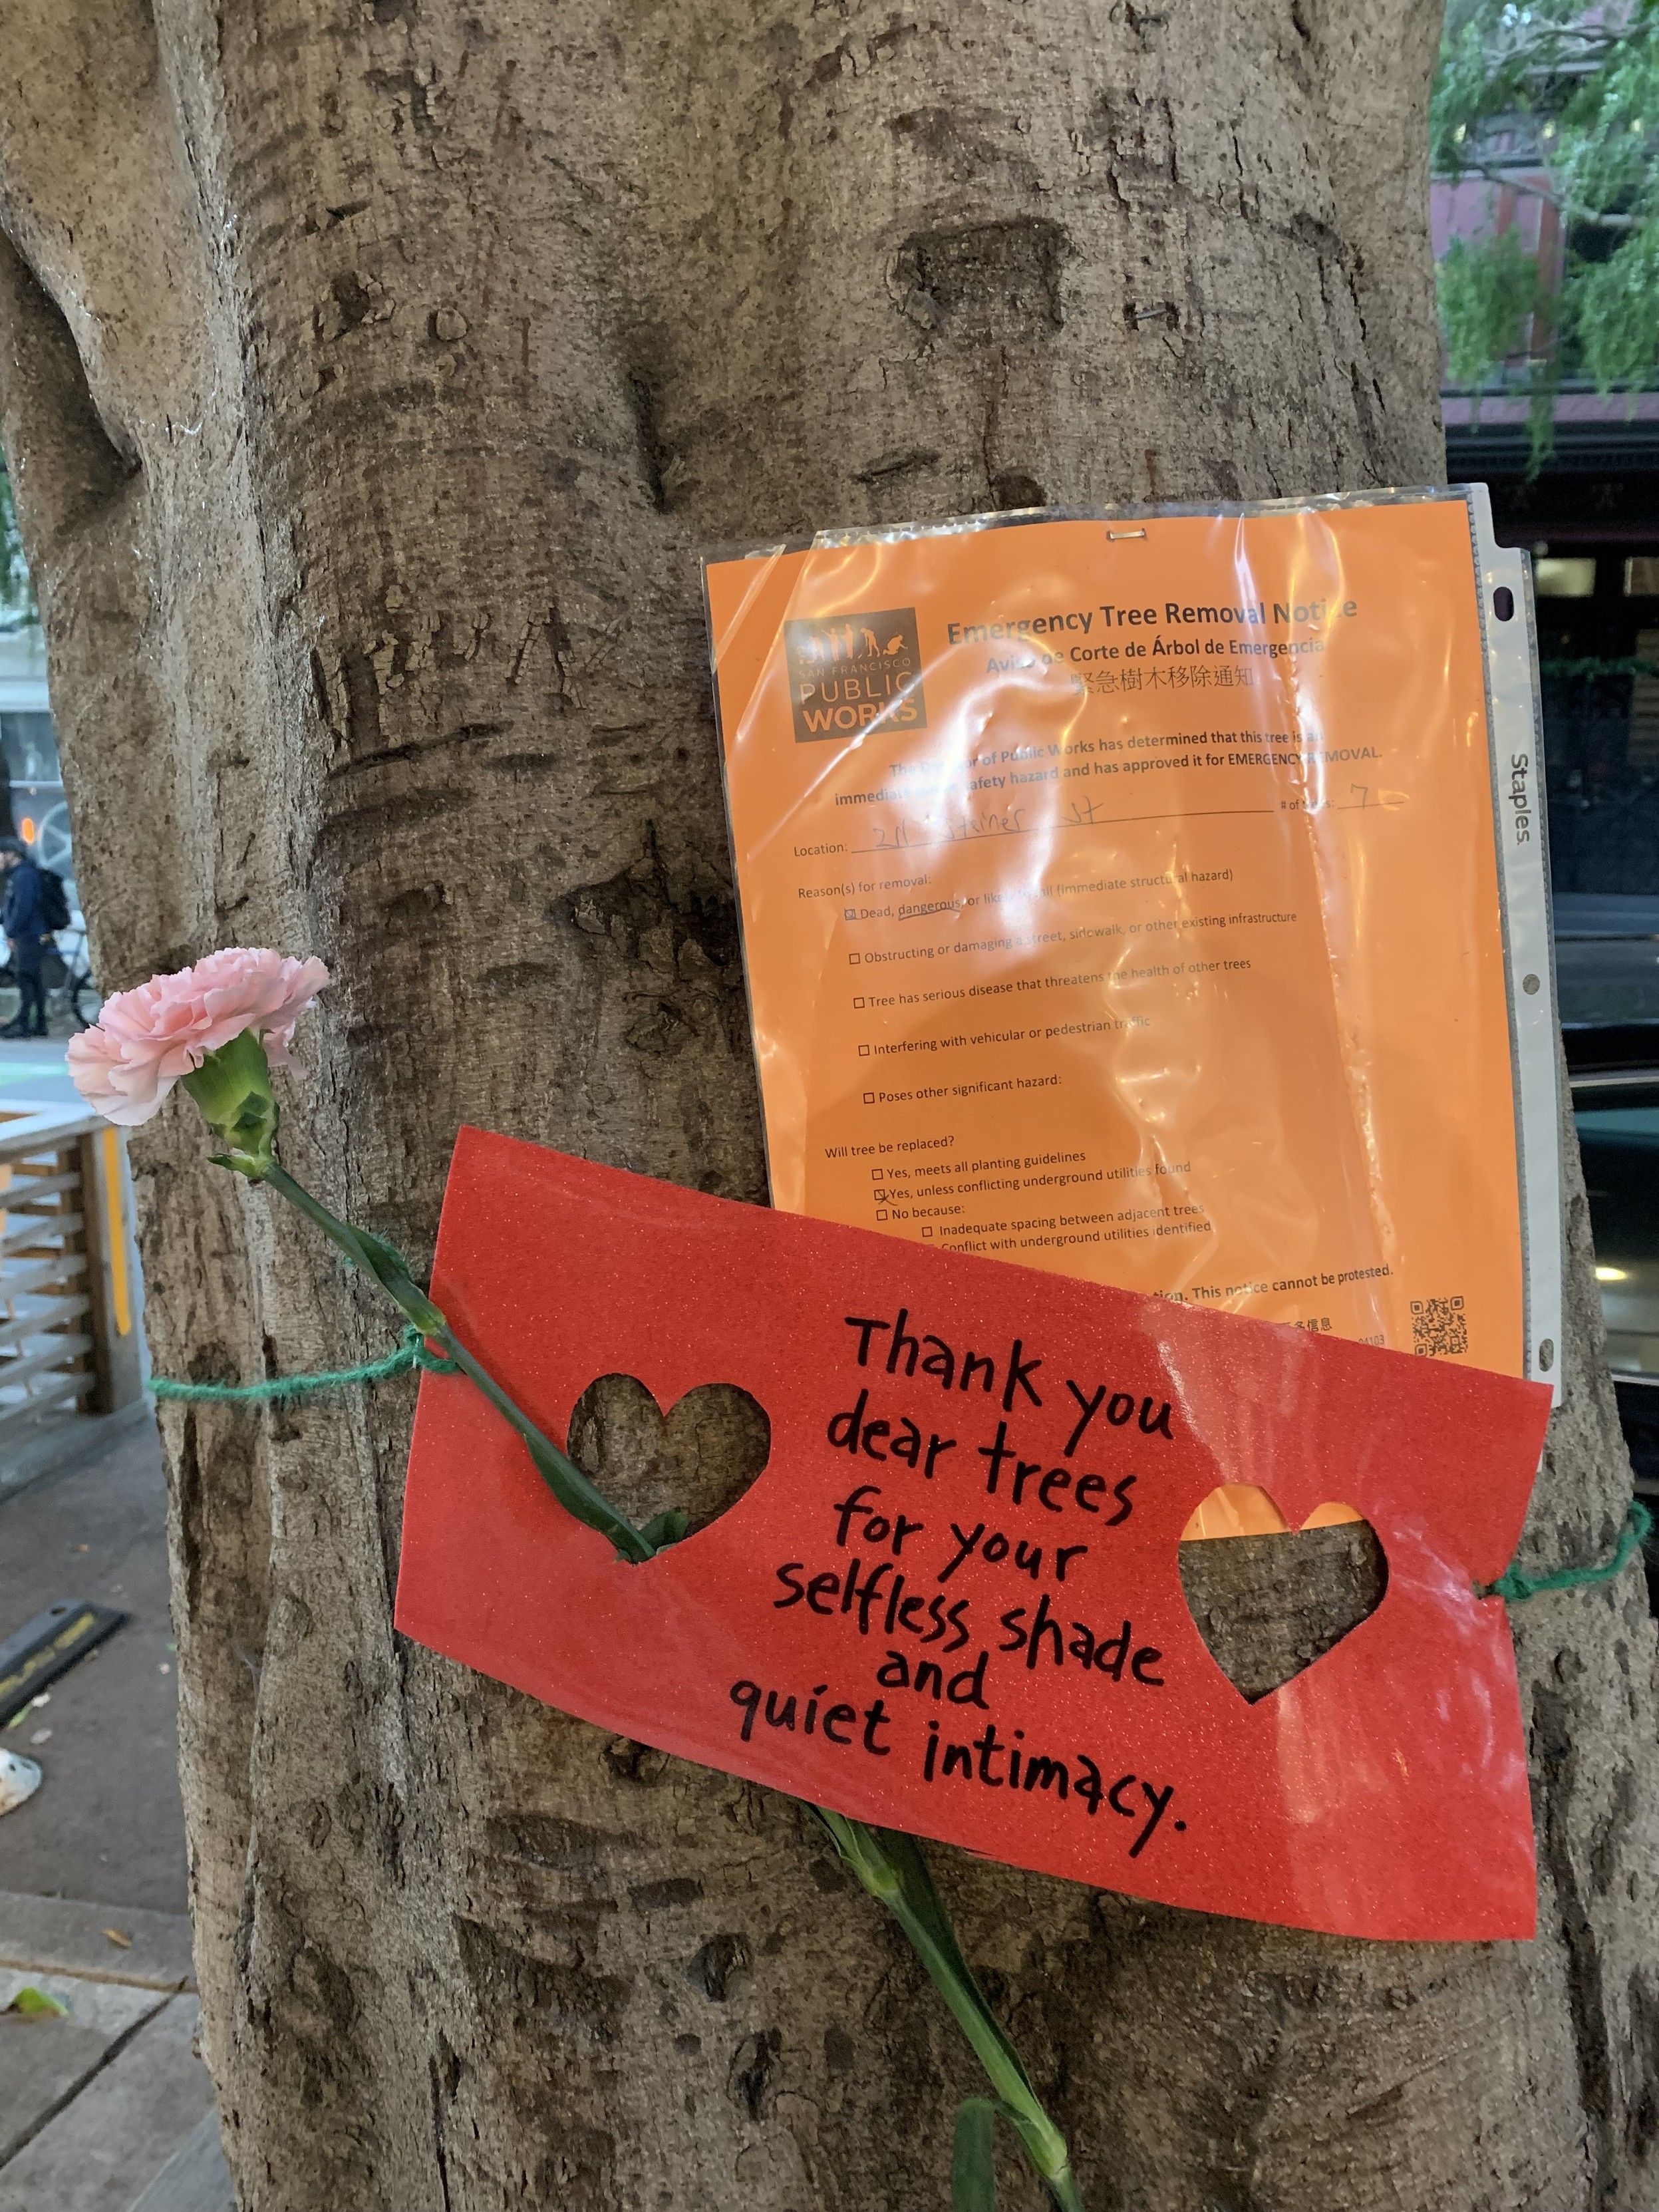 SAN FRANCISCO
PUBLIC
WORKS
Emergency Tree Removal Notice
Aviso de Corte de Árbol de Emergencia
緊急樹木移除通知
The of Public Works has determined that this tree is an
immediate safety hazard and has approved it for EMERGENCY REMOVAL.
Location: Steiner St # of trees: 7
Reason(s) for removal:
Dead, dangerous, or likely to fall (immediate structural hazard)
Obstructing or damaging a street, sidewalk, or other existing infrastructure
Tree has serious disease that threatens the health of other trees
Interfering with vehicular or pedestrian traffic
Poses other significant hazard:
Will tree be replaced?
Yes, meets all planting guidelines
Yes, unless conflicting underground utilities found
No because:
Inadequate spacing between adjacent trees
Conflict with underground utilities identified
This notice cannot be protested.
信息
94103
Staples
Thank you
dear trees
for your
selfless shade
and
quiet intimacy.